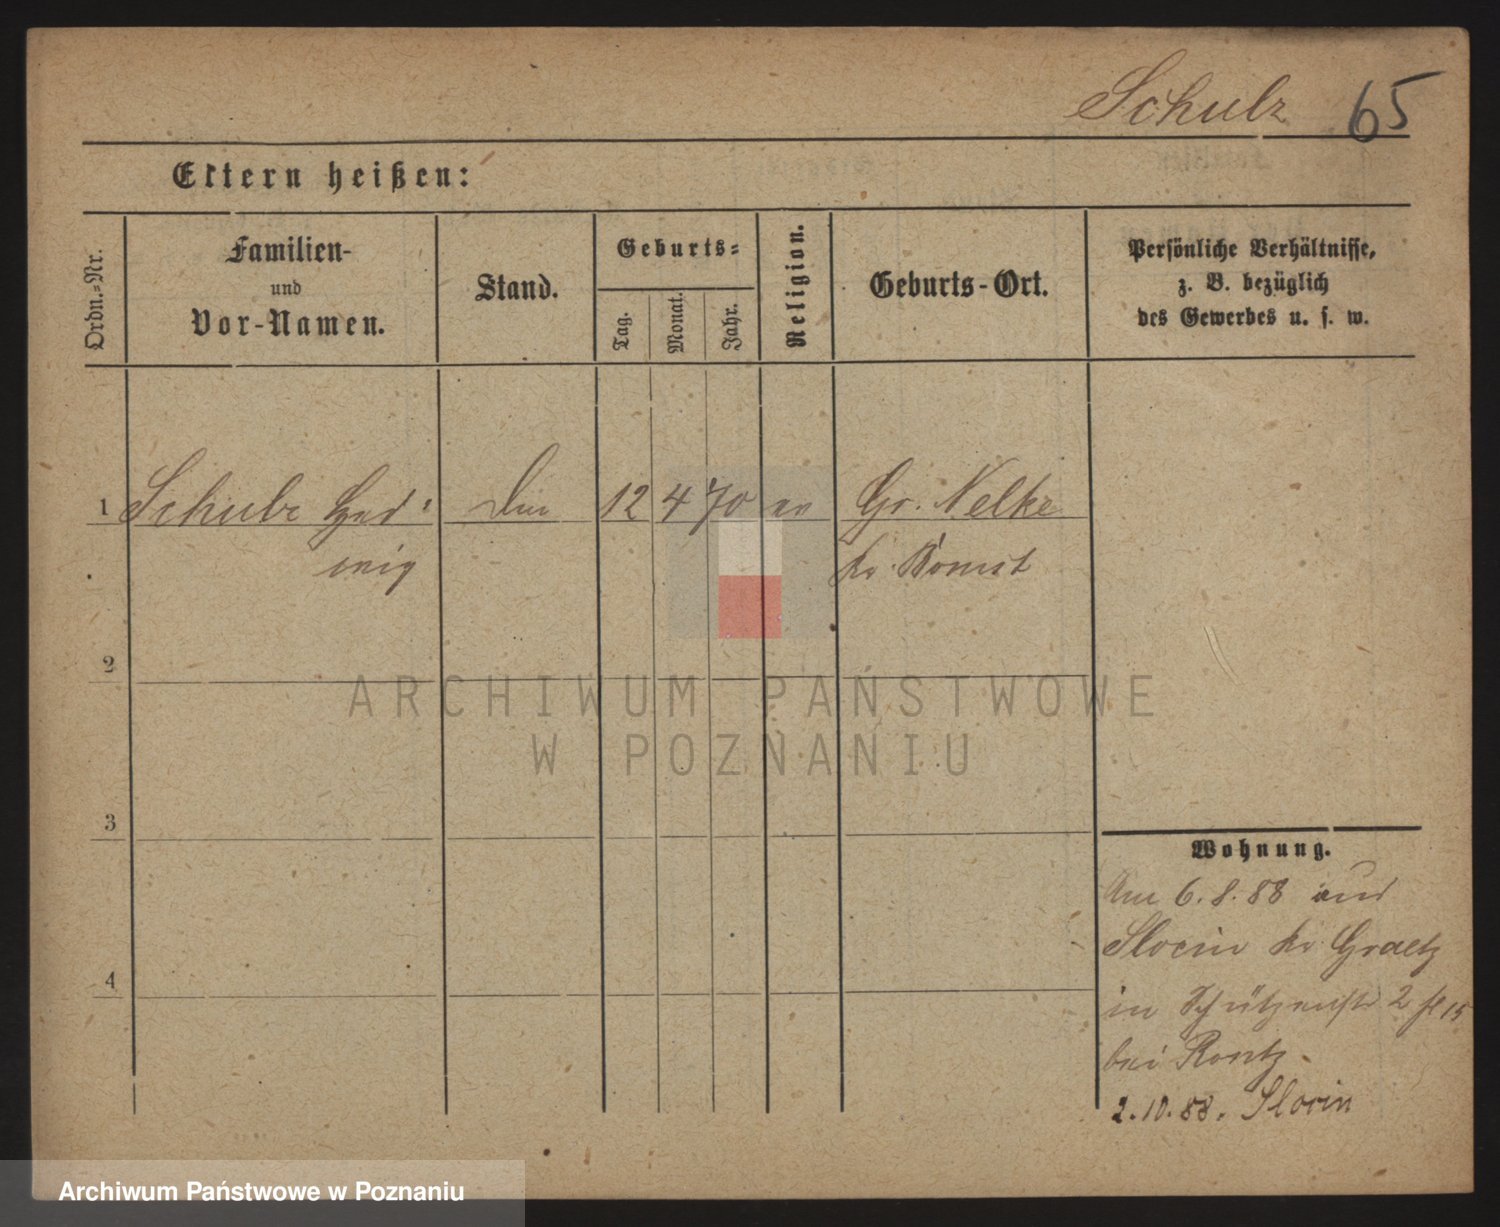 Schulz 65
Eltern heißen:
Ordn.-Nr.
Familien-
und
Vor-Namen.
Stand.
Geburts-
Tag.
Monat.
Jahr.
Religion.
Geburts-Ort.
Persönliche Verhältnisse,
z. B. bezüglich
des Gewerbes u. s. w.
1 Schulz Hed- 12 4 70 ev Gr. Nelke
wig Kr. Bomst
2
3
4
Wohnung.
Am 6.8.88 aus
Slocin Kr Graetz
in Schützenstr 2
bei
2.10.88. Slocin
ARCHIWUM PAŃSTWOWE
W POZNANIU
Archiwum Państwowe w Poznaniu